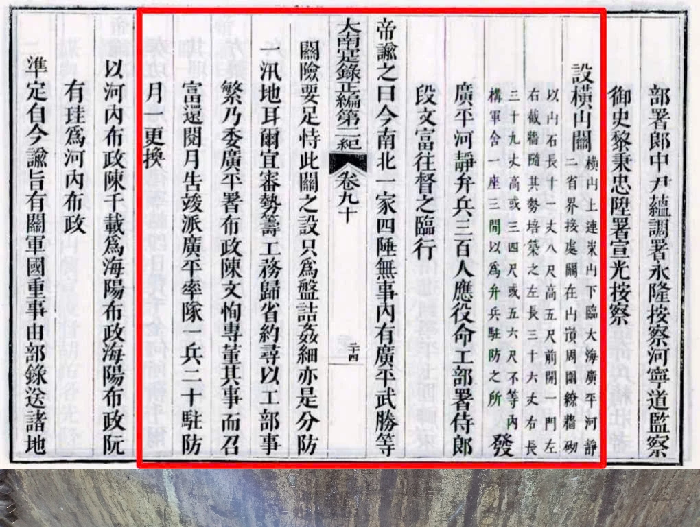 部署郎中尹蘊調署永隆按察河寧道監察
御史黎秉忠陞署宣光按察
設橫山關
橫山上連岽山下臨大海廣平河靜
二省界接處關在山頂周圍繚牆砌
以山石長十一丈八尺高五尺前開一門左
右截牆隨其勢培築之左長三十六丈右長
三十九丈高或三四尺或五六尺不等內
構軍舍一座三間以為弁兵駐防之所
發
廣平河靜弁兵三百人應役命工部署侍郎
段文富往督之臨行
帝諭之曰今南北一家四陲無事內有廣平武勝等
大南寔錄正編第二紀 卷九十 二十四
關險要足恃此關之設只爲盤詰姦細亦是分防
一汛地耳爾宜審勢籌工務歸省約尋以工部事
繁乃委廣平署布政陳文恂專董其事而召
富還閱月告竣派廣平率隊一兵二十駐防
月一更換
以河內布政陳千載爲海陽布政海陽布政阮
有珪爲河內布政
準定自今諭旨有關軍國重事由部錄送諸地